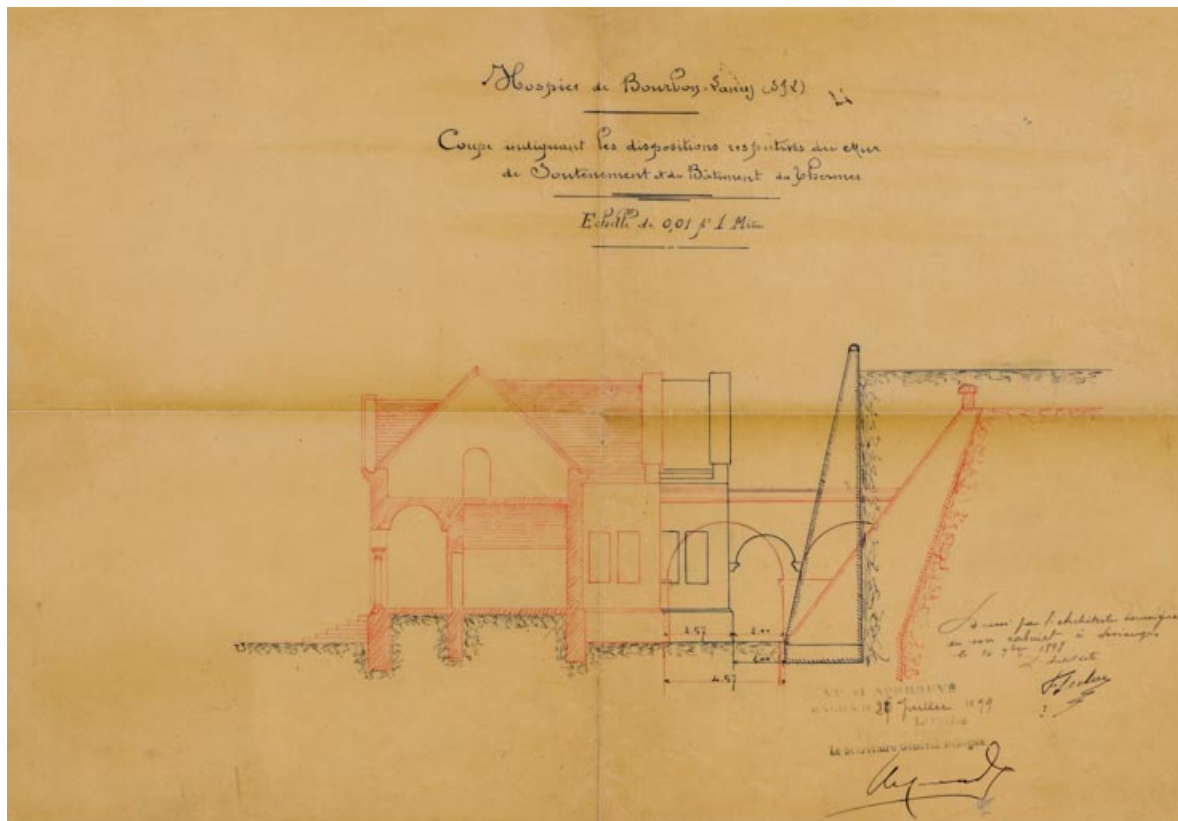 Hospice de Bourbon-Lancy (S&L)
Coupe indiquant les dispositions respectives du Mur
de Soutènement et du Bâtiment des Thermes
Echelle de 0,01 pr 1 Mètre
2.57 2.00
2.00
4.57
Dressé par l'architecte soussigné
en son cabinet à
le 14 9bre 1898
L'architecte
VU ET APPROUVÉ
MACON LE 28 Juillet 1899
Le Préfet
Le Secrétaire Général Délégué